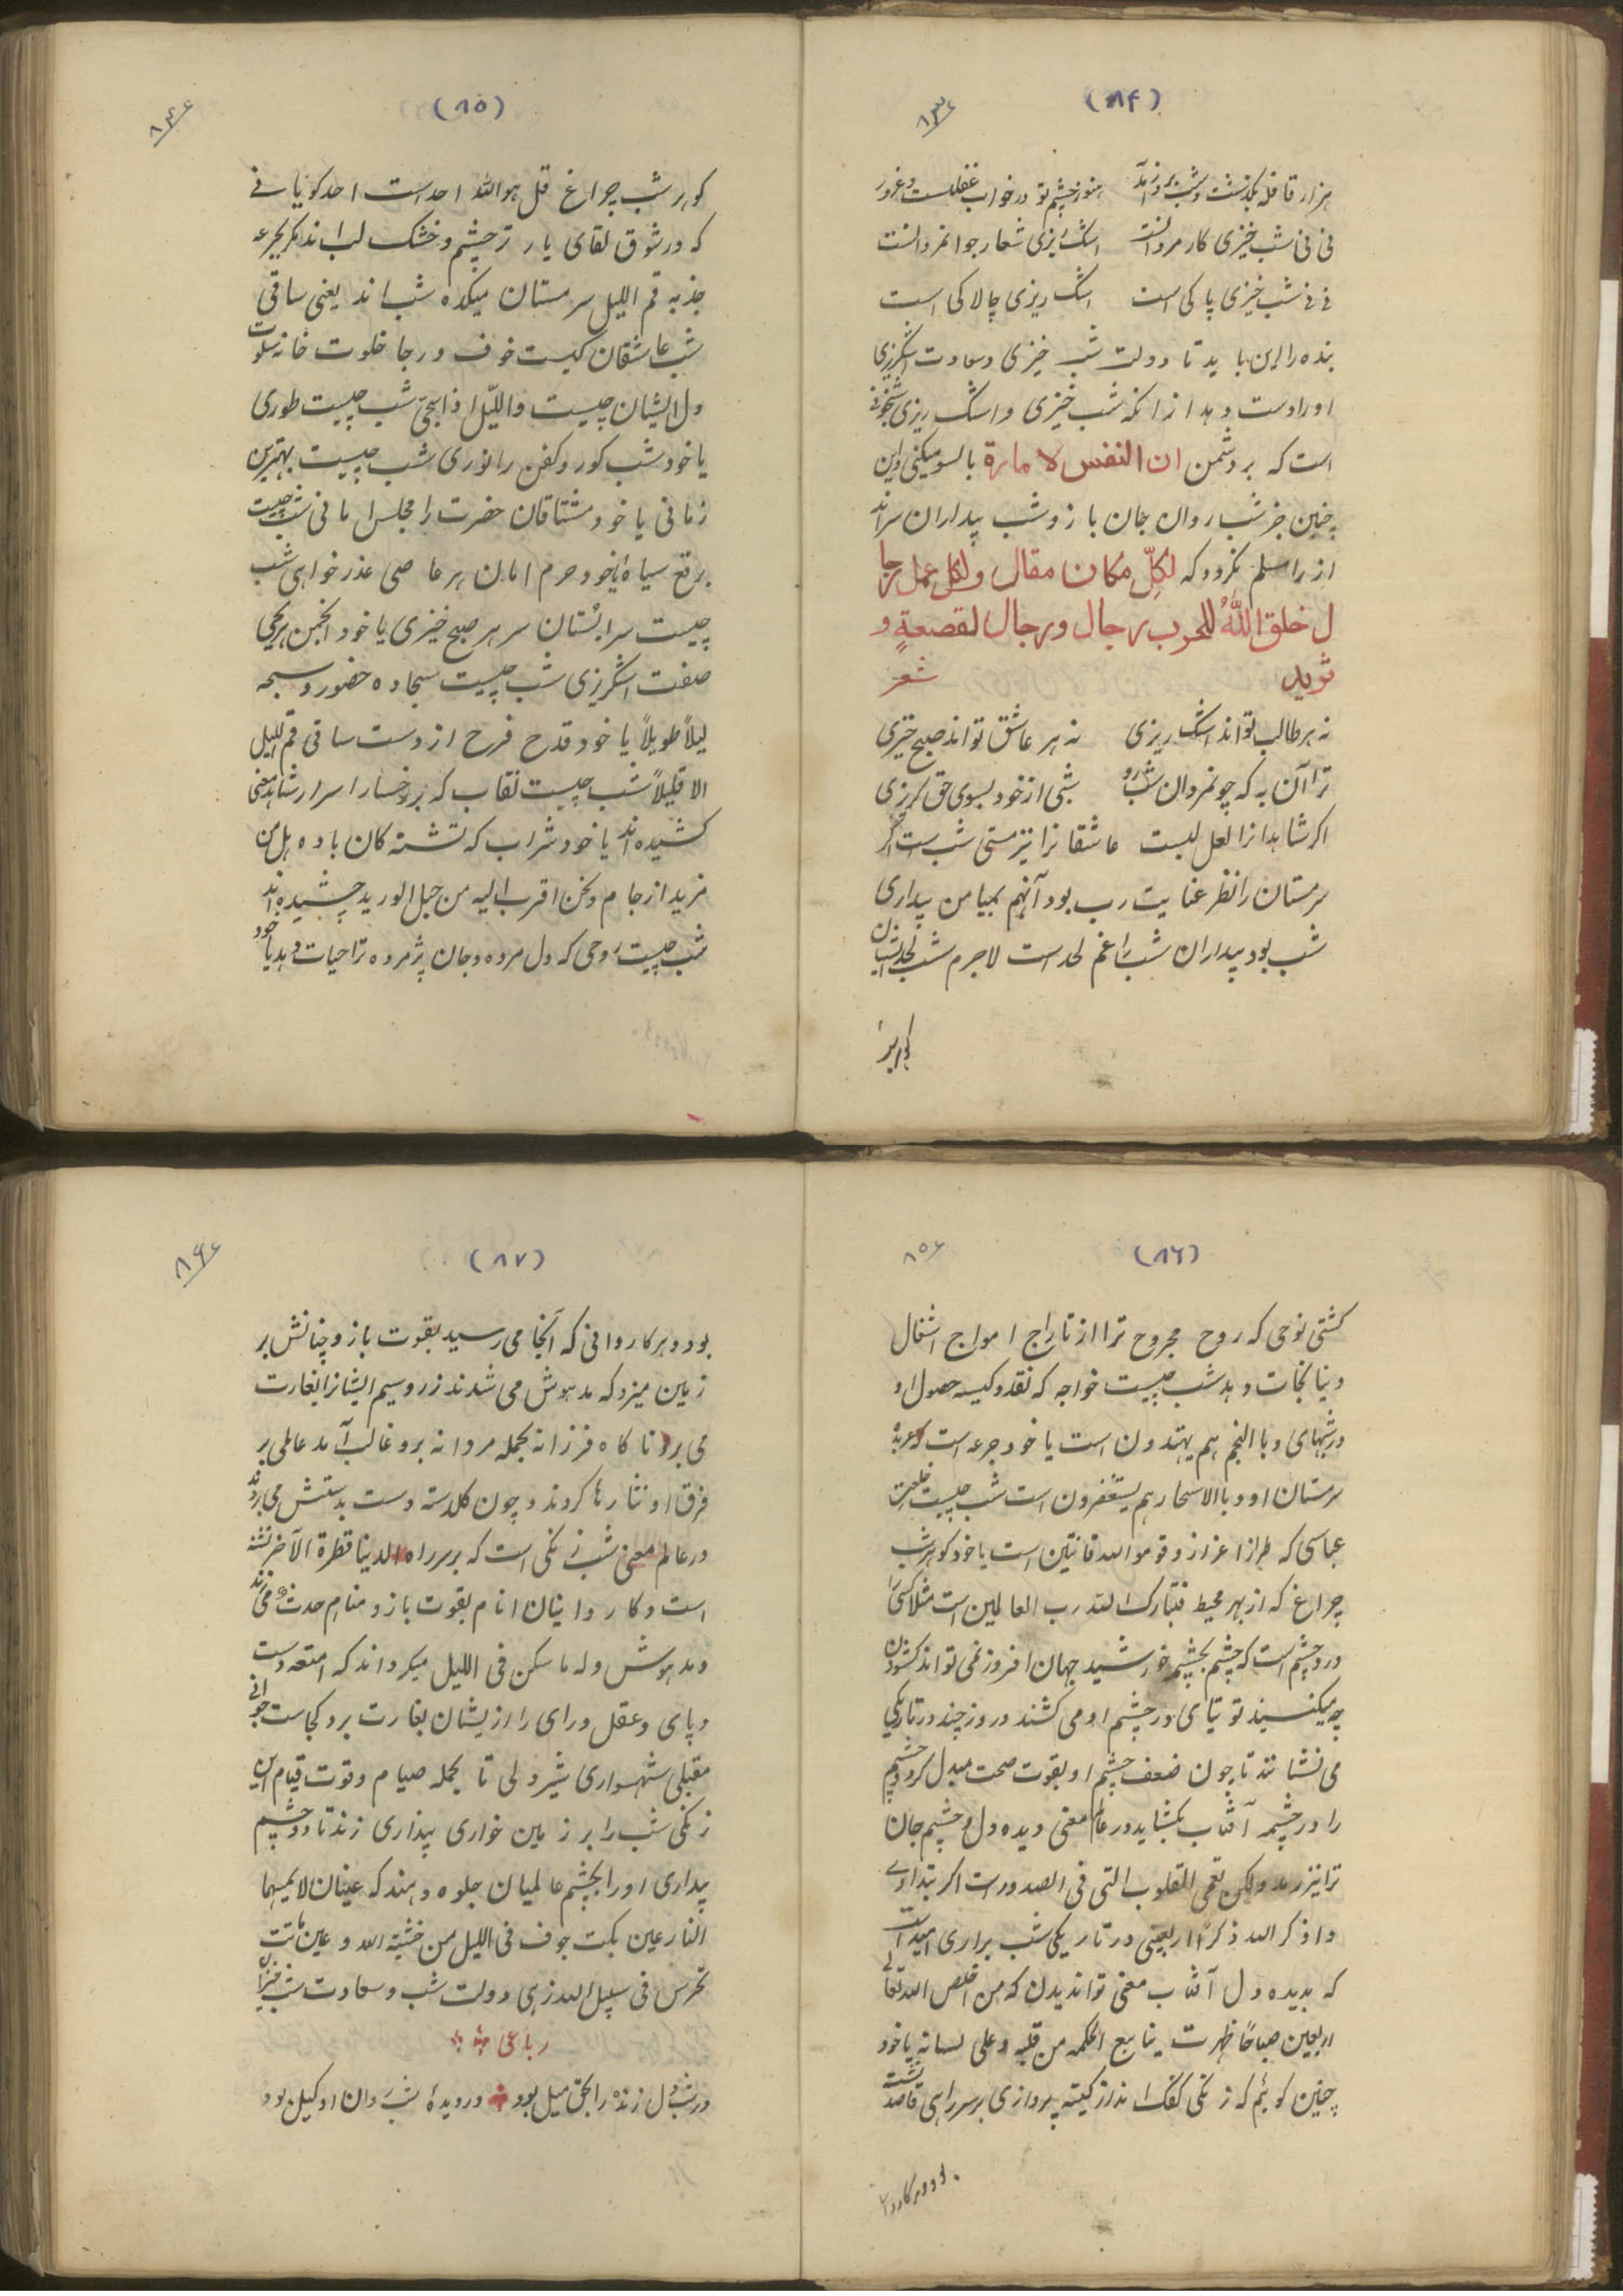 (۸۴)
۸۳
هزار قافله بگذشت و شب بروز آمد هنوز چشم تو در خواب غفلست و غرور
نی نی شب خیزی کار مردانست اشک ریزی شعار جوانمردانست
نے نے شب خیزی پاکی است اشک ریزی چالاکی است
بنده را این باید تا دولت شب خیزی و سعادت اشکریزی
او را دست دهد از انکه شب خیزی و اشک ریزی شبخونے
است که بر دشمن ان النفس لامارة بالسو میکنی و این
چنین جز شب روان جان باز و شب بیداران سرانداز
از را مسلم نکردد که لکلّ مکان مقال و لکل عمل رجا
ل خلق اللهُ للحرب رجال و رجال لقصعةٍ و
ثرید شعر
نه هر طالب تواند اشک ریزی نه هر عاشق تواند صبح خیزی
ترا آن به که چونمردان شب رو شبی از خود بسوی حق کریزی
اکر شاهدانرا لعل لبست عاشقانرا نیز مستی شب است اگر
سرمستان را نظر عنایت رب بود آنهم بمیامن بیداری
شب بود بیداران شب را غم لحد است لاجرم شب لحد ایشان
کوهر شب
(۸۵)
۸۴
کوهر شب چراغ قل هو الله احد است احد کویانے
که در شوق لقای یار تر چشم و خشک لب اند مکر بجرعه
جذبه قم اللیل سرمستان میکده شب اند یعنی ساقی
شب عاشقان کیست خوف و رجا خلوت خانه سلوت
دل ایشان چیست واللّیل اذا سجیٰ شب چیست طوری
یا خود شب کور و کفن را نوری شب چیست بهترین
زمانی یا خود مشتاقان حضرت را مجلس امانی شب چیست
برقع سیاهٔ یا خود حرم امان هر عاصی عذر خواهی شب
چیست سرابُستان سر هر صبح خیزی یا خود انجمن هر یحیی
صفت اشکریزی شب چیست سجاده حضور و سبحه
لیلاً طویلاً یا خود قدح فرح از دست ساقی قم اللیل
الا قلیلاً شب چیست نقاب که بر رخسار اسرار شاهد معنی
کشیده اند یا خود شراب که تشنه کان باده هل من
مزید از جام و نحن اقرب الیه من حبل الورید چشیده اند
شب چیست روحی که دل مرده و جان پژمرده ترا حیات دهد یا خود
(۸۶)
۸۵
کشتی نوحی که روح مجروح ترا از تاراج امواج اشغال
دنیا نجات دهد شب چیست خواجه که نقد و کیسه حصول او
در شبهای و با النجم هم یهتدون است یا خود جرعه است که عربده
سرمستان او و بالاسحار هم یستغفرون است شب چیست خلعت
عباسی که طراز اعزاز و قوموا لله قانتین است یا خود کوهر شب
چراغ که از بهر محیط فتبارک الله رب العالمین است مثلا کسی را
درد چشم است که چشم بچشم خورشید جهان افروز نمی تواند کشودن
چه میکنند توتیای در چشم او می کشند و روز چند در تاریکی
می نشانند تا چون ضعف چشم او بقوت صحت مبدل کردد چشم
را در چشمه آفتاب بکشاید در عالم معنی دیده دل و چشم جان
ترا نیز رمد ولکن تعمی القلوب التی فی الصدور است اکر بتداوے
واذکر الله ذکرًا اربعینی در تاریکی شب براری امید است
که بدیده دل آفتاب معنی تواند یدن که من اخلص الله تعالی
اربعین صباحًا ظهرت ینابیع الحکمه من قلبه و علی لسانه یا خود
چنین کویٔم که زنکی کفک انداز کیته پردازی بر سر راهی قاصد نشسته
بود و هر کاروا
(۸۷)
۸۶
بود و هر کاروانی که آنجا می رسید بقوت بازو چنانش بر
زمین میزد که مدهوش می شدند زر و سیم ایشانرا بغارت
می برد تا کاه فرزانه بحمله مردانه برو غالب آمد عالمی بر
فرق او نثارها کردند و چون کلدسته دست بدستش می بردند
در عالم معنی شب زنکی است که بر سر راه الدنیا قطرة الآخر نشسته
است و کاروانیان انام بقوت بازو منام حدث می زند
و مدهوش وله ما سکن فی اللیل میکرداند که امتعه دست
و پای و عقل و رای را از یشان بغارت برد کجاست جوانی
مقبلی شهسواری شیر دلی تا بحمله صیام و قوت قیام این
زنکی شب را بر زمین خواری بیداری زند تا دو چشم
بیداری او را بچشم عالمیان جلوه دهند که عینان لا یمسهما
النار عین بکت جوف فی اللیل من خشیة الله و عین باتت
تحرس فی سبیل الله زهی دولت شب و سعادت شب خیزان
رباعی
در شب دل زنده را بحق میل بود در دیدهٔ شب روان او کیل بود